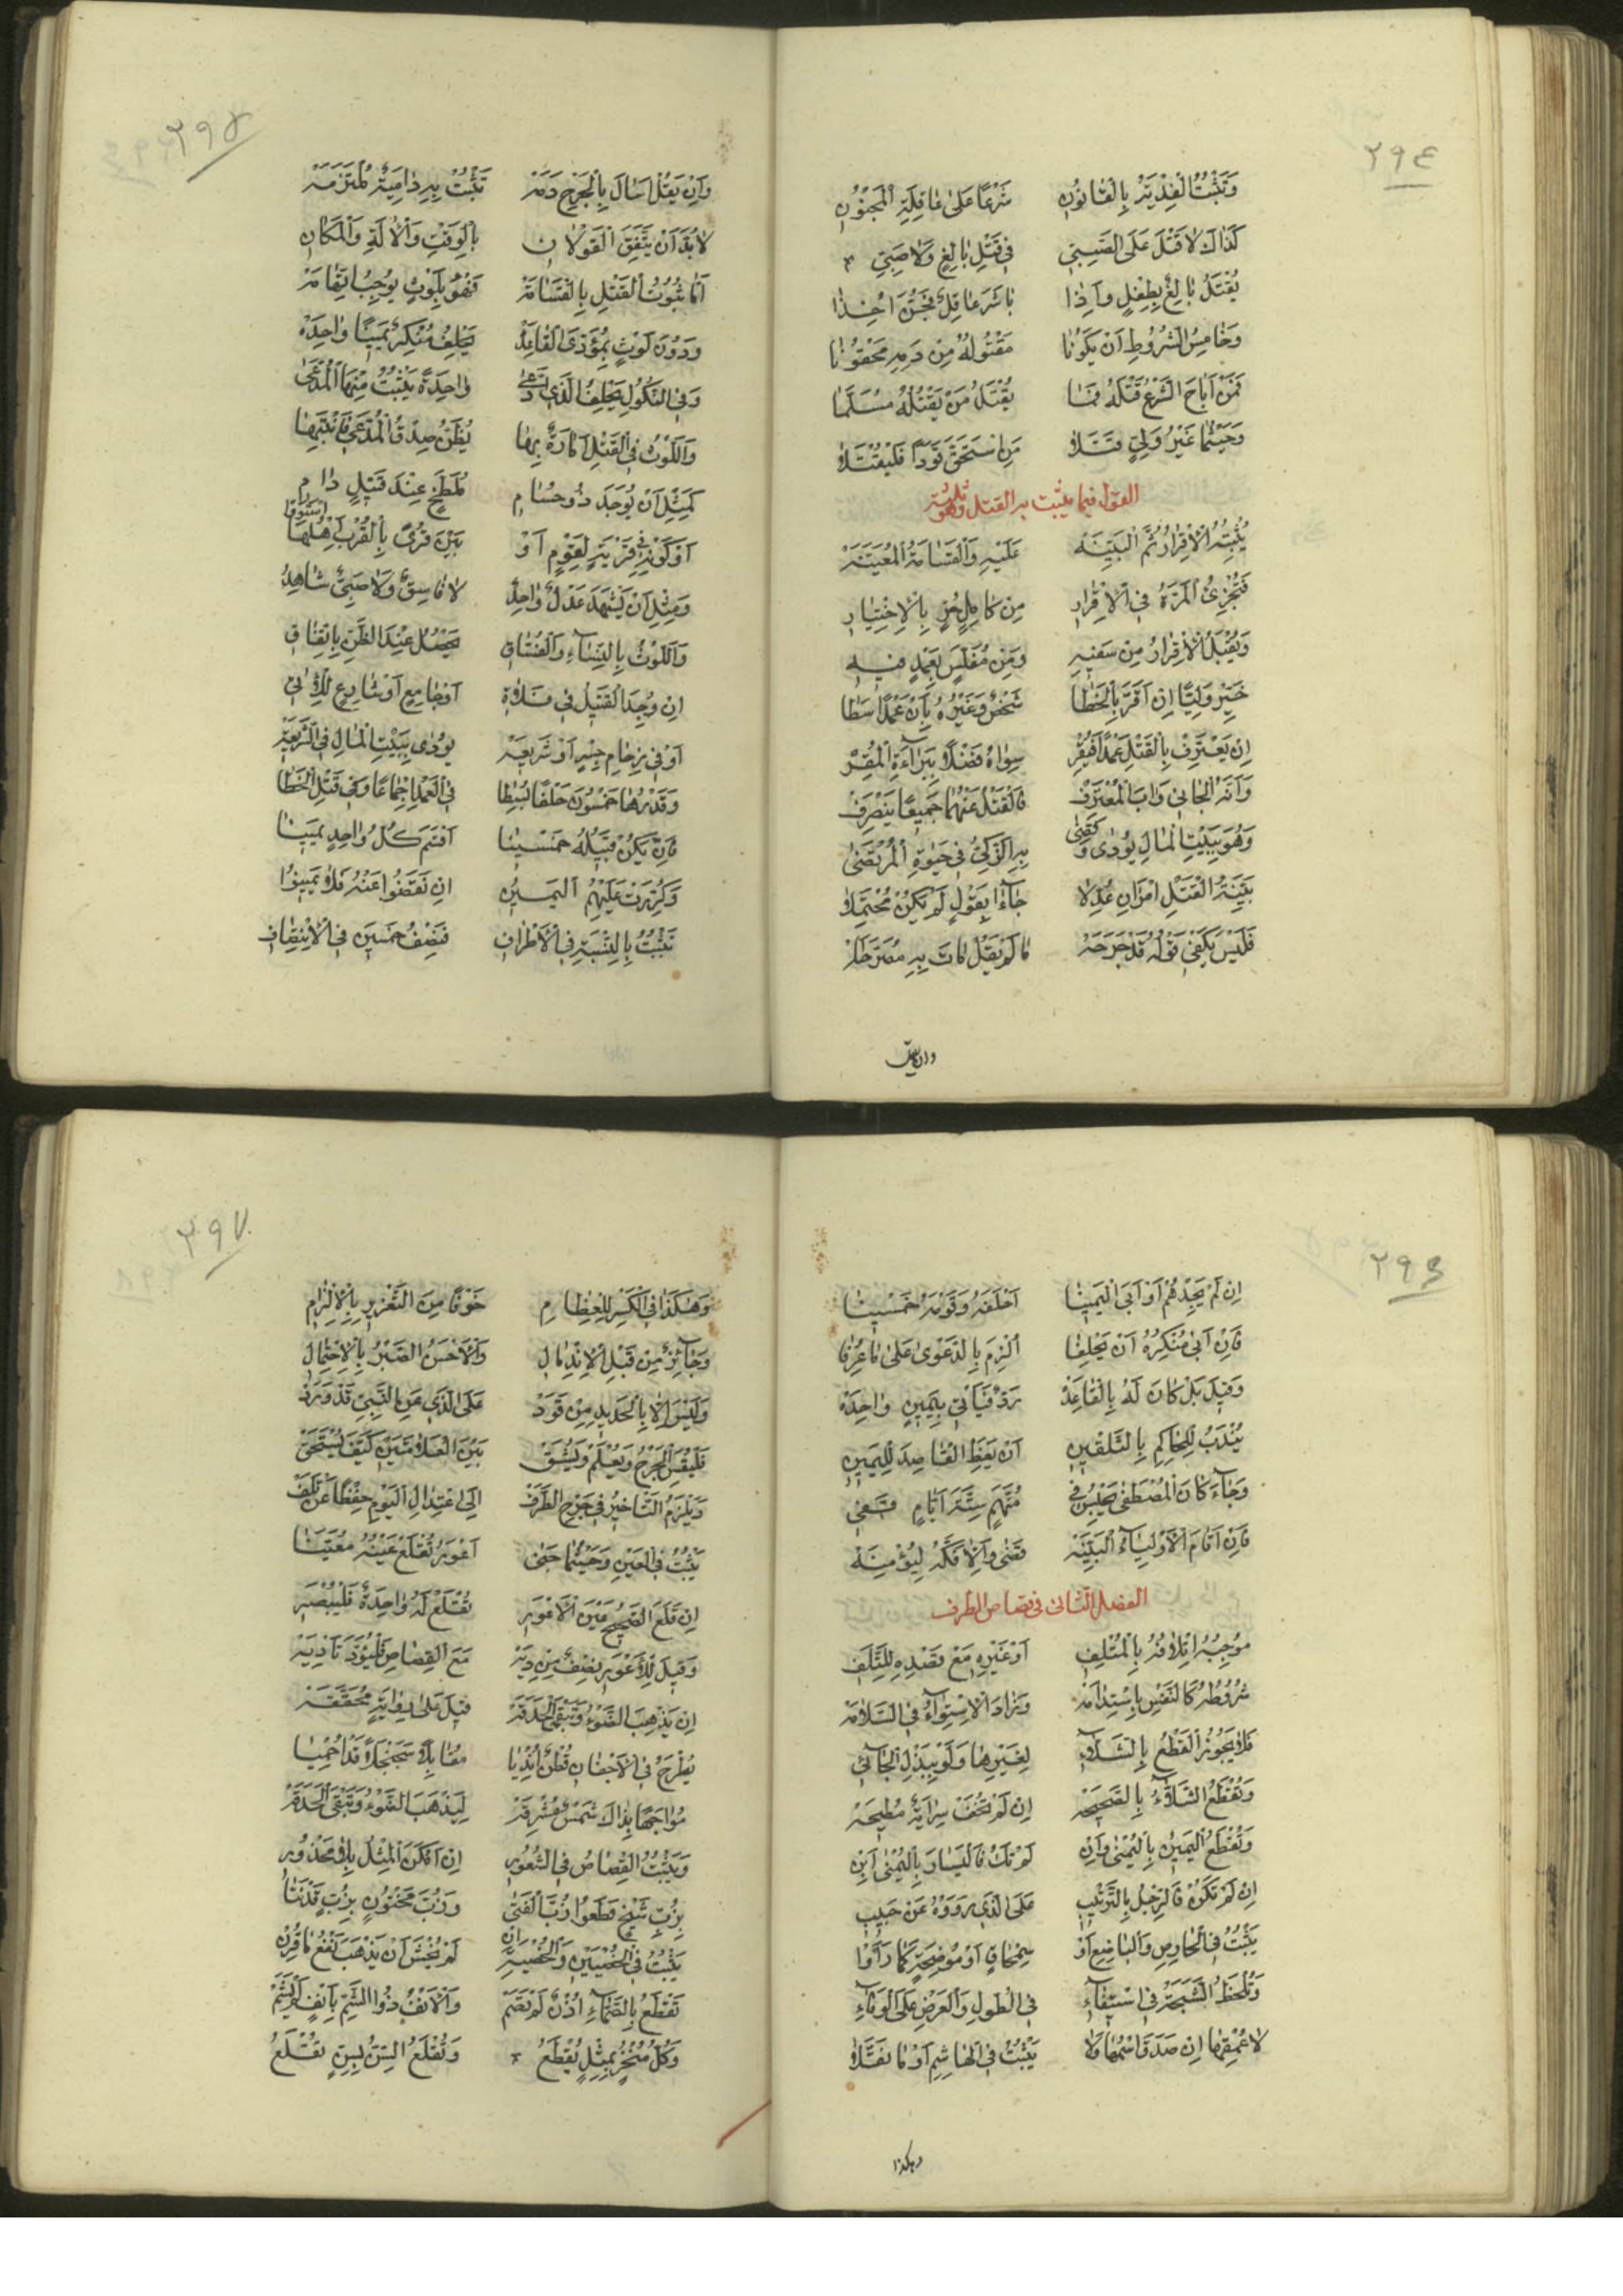 ٢٩٤
وَتَثْبُتُ الْفِدْيَةُ بِالْقَانُونِ شَرْعًا عَلَىٰ عَاقِلَةِ الْمَجْنُونِ
كَذَاكَ لَا قَتْلَ عَلَى الصَّبِيِّ فِي قَتْلِ بَالِغٍ وَلَا صَبِيِّ
يُقْتَلُ بَالِغٌ بِطِفْلٍ وَإِذَا بَاشَرَ عَاقِلٌ فَجُنَّ أُخِذَا
وَخَامِسُ الشُّرُوطِ أَنْ يَكُونَا مَقْتُولُهُ مِنْ دَمِهِ مَحْقُونَا
فَمَنْ أَبَاحَ الشَّرْعُ قَتْلَهُ فَمَا يُقْتَلُ مَنْ يَقْتُلُهُ مُسَلَّمَا
وَحَيْثُمَا غَيْرُ وَلِيٍّ قَتَلَا مَنِ اسْتَحَقَّ قَوَدًا فَلْيُقْتَلَا
القول فيما يثبت به القتل وهو ثلثة
يُثْبِتُهُ الْإِقْرَارُ ثُمَّ الْبَيِّنَهْ عَلَيْهِ وَالْقَسَامَةُ الْمُعَيَّنَهْ
فَتُجْزِئُ الْمَرَّةُ فِي الْإِقْرَارِ مِنْ كَامِلٍ حُرٍّ بِالْاِخْتِيَارِ
وَيُقْبَلُ الْإِقْرَارُ مِنْ سَفِيهِ وَمِنْ مُفَلَّسٍ بِعَمْدٍ فِيهِ
خَيِّرْ وَلِيًّا إِنْ أَقَرَّ بِالْخَطَا شَخْصٌ وَغَيْرُهُ بِأَنْ عَمْدًا سَطَا
إِنْ يَعْتَرِفْ بِالْقَتْلِ عَمْدًا فَيُقِرّ سِوَاهُ فَضْلًا بِبَرَاءَةِ الْمُقِرّ
وَأَنَّهُ الْجَانِي وَآبَ الْمُعْتَرِفْ فَالْقَتْلُ عَنْهُمَا جَمِيعًا يَنْصَرِفْ
وَهُوَ بِبَيْتِ الْمَالِ يُودَى وَقَضَى بِهِ الزَّكِيُّ فِي حَيٰوةِ الْمُرْتَضَى
بَيِّنَةُ الْقَتْلِ امْرَآنِ عُدِّلَا جَاءَا بِقَوْلٍ لَمْ يَكُنْ مُحْتَمَلَا
فَلَيْسَ يَكْفِي قَوْلُهُ قَدْ جَرَحَهْ مَا لَمْ يَقُلْ مَاتَ بِهِ مُصَرِّحَهْ
وان يقل
٢٩٥
وَإِنْ يَقُلْ أَسَالَ بِالْجَرْحِ دَمَهْ تَثْبُتْ بِهِ دَامِيَةٌ مُلْتَزَمَهْ
لَا بُدَّ أَنْ يَتَّفِقَ الْقَوْلَانِ بِالْوَقْتِ وَالْآلَةِ وَالْمَكَانِ
أَمَّا ثُبُوتُ الْقَتْلِ بِالْقَسَامَهْ فَهُوَ بِلَوْثٍ يُوجِبُ اتِّهَامَهْ
وَدُونَ لَوْثٍ بِمُؤَدَّى الْقَاعِدَهْ يَحْلِفُ مُنْكِرٌ يَمِينًا وَاحِدَهْ
وَفِي النُّكُولِ يَحْلِفُ الَّذِي ادَّعَىٰ وَاحِدَةً يَثْبُتُ مِنْهَا الْمُدَّعَىٰ
وَاللَّوْثُ فِي الْقَتْلِ أَمَارَةٌ بِهَا يُظَنُّ صِدْقُ الْمُدَّعِي
كَمِثْلِ أَنْ يُوجَدَ ذُو حُسَامِ مُلَطَّخٍ عِنْدَ قَتِيلٍ دَامِ
أَوْ كَوْنِهِ فِي قَرْيَةٍ لِقَوْمٍ أَوْ بَيْنَ قُرًى بِالْقُرْبِ أَهْلُهَا اسْتَوَوْا
وَمِثْلِ أَنْ يَشْهَدَ عَدْلٌ وَاحِدُ لَا فَاسِقٌ وَلَا صَبِيٌّ شَاهِدُ
وَاللَّوْثُ بِالنِّسَاءِ وَالْفُسَّاقِ يَحْصُلُ عِنْدَ الظَّنِّ بِاتِّفَاقِ
إِنْ وُجِدَ الْقَتِيلُ فِي فَلَاةِ أَوْ جَامِعٍ أَوْ شَارِعٍ
أَوْ فِي زِحَامِ جِسْرٍ أَوْ شَرِيعَهْ يُودَى بِبَيْتِ الْمَالِ فِي الشَّرِيعَهْ
وَقَدْرُهَا خَمْسُونَ حَلْفًا ضُبِطَا فِي الْعَمْدِ إِجْمَاعًا وَفِي قَتْلِ الْخَطَا
فَإِنْ يَكُنْ قَبِيلُهُ خَمْسِينَا أَقْسَمَ كُلُّ وَاحِدٍ يَمِينَا
وَكُرِّرَتْ عَلَيْهِمُ الْيَمِينُ إِنْ نَقَصُوا عَنْهُ
تَثْبُتُ بِالنِّسْبَةِ فِي الْأَطْرَافِ فَنِصْفُ خَمْسِينَ فِي الْاِنْتِصَافِ
٢٩٦
إِنْ لَمْ يَجِدْهُمْ أَوْ أَبَى الْيَمِينَا أَحْلَفَهُ وَقَوْمَهُ خَمْسِينَا
فَإِنْ أَبَىٰ مُنْكِرُهُ أَنْ يَحْلِفَا أُلْزِمَ بِالدَّعْوَىٰ عَلَىٰ مَا عُرِفَا
وَقِيلَ بَلْ كَانَ لَهُ بِالْقَاعِدَهْ رَدٌّ فَيَأْتِي بِيَمِينٍ وَاحِدَهْ
يُنْدَبُ لِلْحَاكِمِ بِالتَّلْقِينِ أَنْ يَعِظَ الْقَاصِدَ لِلْيَمِينِ
وَجَاءَ كَانَ الْمُصْطَفَىٰ يَحْبِسُ فِي مُتَّهَمٍ سِتَّةَ أَيَّامٍ
فَإِنْ أَقَامَ الْأَوْلِيَاءُ الْبَيِّنَهْ قَضَىٰ وَإِلَّا فَكَّهُ
الفصل الثانى فى قصاص الطرف
مُوجِبُهُ إِتْلَافُهُ بِالْمُتْلِفِ أَوْ غَيْرِهِ مَعْ قَصْدِهِ لِلتَّلَفِ
شُرُوطُهُ كَالنَّفْسِ بِاسْتِدَامَهْ وَزَادَ الْاِسْتِوَاءُ فِي السَّلَامَهْ
فَلَا يَجُوزُ الْقَطْعُ بِالشَّلَّاءِ لِغَيْرِهَا وَلَوْ بِبَذْلِ الْجَائِي
وَتُقْطَعُ الشَّلَّاءُ بِالصَّحِيحَهْ إِنْ لَمْ تُخَفْ سِرَايَةٌ مُطِيحَهْ
وَتُقْطَعُ الْيَمِينُ بِالْيُمْنَىٰ وَإِنْ لَمْ تَكُ فَالْيَسَارَ بِالْيُمْنَىٰ أَبِنْ
إِنْ لَمْ تَكُنْ فَالرِّجْلُ بِالتَّرْتِيبِ عَلَى الَّذِي رَوَوْهُ عَنْ حَبِيبِ
يَثْبُتُ فِي الْحَارِصِ وَالْبَاضِعِ أَوْ سِمْحَاقٍ أَوْ مُوضِحَةٍ كَمَا رَأَوْا
وَتُلْحَظُ الشَّجَّةُ فِي اسْتِيفَاءِ فِي الطُّولِ وَالْعَرْضِ عَلَى الْوَفَاءِ
لَا عُمْقِهَا إِنْ صَدَقَ اسْمُهَا وَلَا يَثْبُتُ فِي الْهَاشِمِ أَوْ مَا نَقَّلَا
وهكذا
٢٩٧
وَهٰكَذَا فِي الْكَسْرِ لِلْعِظَامِ خَوْفًا مِنَ التَّغْرِيرِ بِالْإِلْزَامِ
وَجَائِزٌ مِنْ قَبْلِ الْاِنْدِمَالِ وَالْأَحْسَنُ الصَّبْرُ بِالْاِحْتِمَالِ
وَلَيْسَ إِلَّا بِالْحَدِيدِ مِنْ قَوَدْ عَلَى الَّذِي عَنِ النَّبِيِّ قَدْ وَرَدْ
فَلْيُقَسِ الْجَرْحُ وَيُعْلَمْ وَيُشَقّ بَيْنَ الْعَلَامَتَيْنِ كَيْفَ يُسْتَحَقّ
وَيَلْزَمُ التَّأْخِيرُ فِي جَرْحِ الطَّرَفْ إِلَى اعْتِدَالِ الْيَوْمِ حِفْظًا عَنْ تَلَفْ
يَثْبُتُ فِي الْعَيْنِ وَحَيْثُمَا جَنَىٰ أَعْوَرُ تُقْلَعْ عَيْنُهُ مُعَيَّنَا
إِنْ قَلَعَ الصَّحِيحُ عَيْنَ الْأَعْوَرِ تُقْتَلَعْ لَهُ وَاحِدَةٌ
وَقِيلَ لِلْأَعْوَرِ نِصْفٌ مِنْ دِيَهْ مَعَ الْقِصَاصِ فَلْيُؤَدَّ تَأْدِيَهْ
إِنْ يَذْهَبِ الضَّوْءُ وَتَبْقَى الْحَدَقَهْ قِيلَ عَلَىٰ رِوَايَةٍ مُحَقَّقَهْ
يُطْرَحُ فِي الْأَجْفَانِ قُطْنٌ نُدِّيَا مُقَابِلًا سَجَنْجَلًا قَدْ أُحْمِيَا
مُوَاجِهًا بِذَاكَ شَمْسٌ مُشْرِقَهْ لِيَذْهَبَ الضَّوْءُ وَتَبْقَى الْحَدَقَهْ
وَيَثْبُتُ الْقِصَاصُ فِي الشُّعُورِ إِنْ أَمْكَنَ الْمِثْلُ بِلَا مَحْذُورِ
بِزُبِّ شَيْخٍ قَطَعُوا زُبَّ الْفَتَىٰ وَزُبَّ مَخْتُونٍ بِزُبٍّ
يَثْبُتُ فِي الْخُصْيَيْنِ وَالْخُصْيَةِ إِنْ لَمْ يُخْشَ أَنْ يَذْهَبَ نَفْعُ مَا قُرِنْ
تُقْطَعُ بِالصَّمَّاءِ أُذْنٌ لَمْ تُصَمّ وَالْأَنْفُ ذُو الشَّمِّ بِأَنْفٍ لَمْ يُشَمّ
وَكُلُّ مُنْخُرٍ بِمِثْلٍ يُقْطَعُ وَتُقْلَعُ السِّنُّ بِسِنٍّ تُقْلَعُ